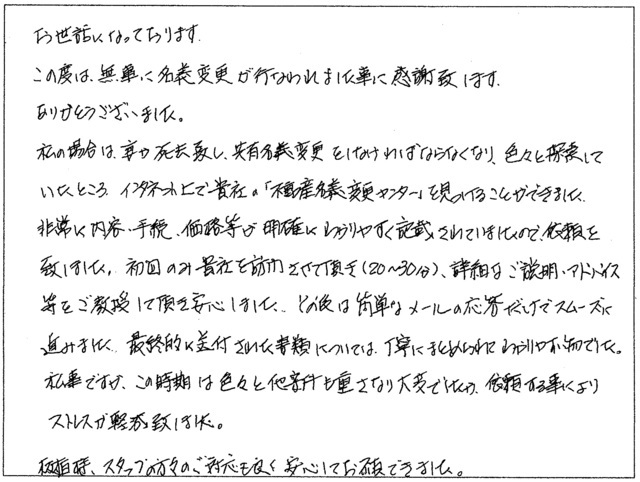 お世話になっております.
この度は、無事に名義変更が行なわれました事に感謝致します.
ありがとうございました。
私の場合は、妻が死去致し、共有名義変更をしなければならなくなり、色々と探索して
いたところ、インターネット上で貴社の「不動産名義変更センター」を見つけることができました.
非常に内容、手続、価格等が明確にわかりやすく記載されていましたので、依頼を
致しました。初回のみ貴社を訪問させて頂き(20〜30分)、詳細なご説明・アドバイス
等をご教授して頂き安心しました. その後は簡単なメールの応答だけでスムーズに
進みました. 最終的に送付された書類については、丁寧にまとめられてわかりやすい物でした。
私事ですが、この時期は色々と他案件も重さなり大変でしたが、依頼する事により
ストレスが軽減致しました。
板垣様、スタッフの方々のご対応も良く安心してお願できました。